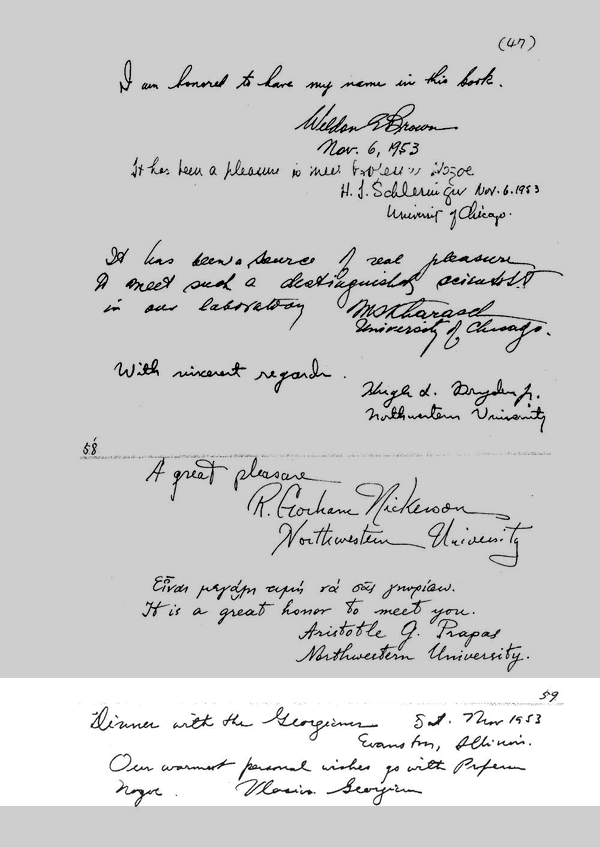 (47)
I am honored to have my name in this book.
Weldon G Brown
Nov. 6, 1953
It has been a pleasure to meet Professor Nozoe
H. I. Schlesinger Nov. 6. 1953
University of Chicago.
It has been a source of real pleasure
to meet such a distinguished scientist
in our laboratory M S Kharasch
University of Chicago.
With sincerest regards.
Hugh L. Dryden Jr.
Northwestern University
58
A great pleasure
R. Gorham Nickerson
Northwestern University
Εἶναι μεγάλη τιμή νά σᾶς γνωρίσω.
It is a great honor to meet you.
Aristotle G. Prapas
Northwestern University.
59
Dinner with the Georgians Sat. Nov 1953
Evanston, Illinois.
Our warmest personal wishes go with Professor
Nozoe. Georgian